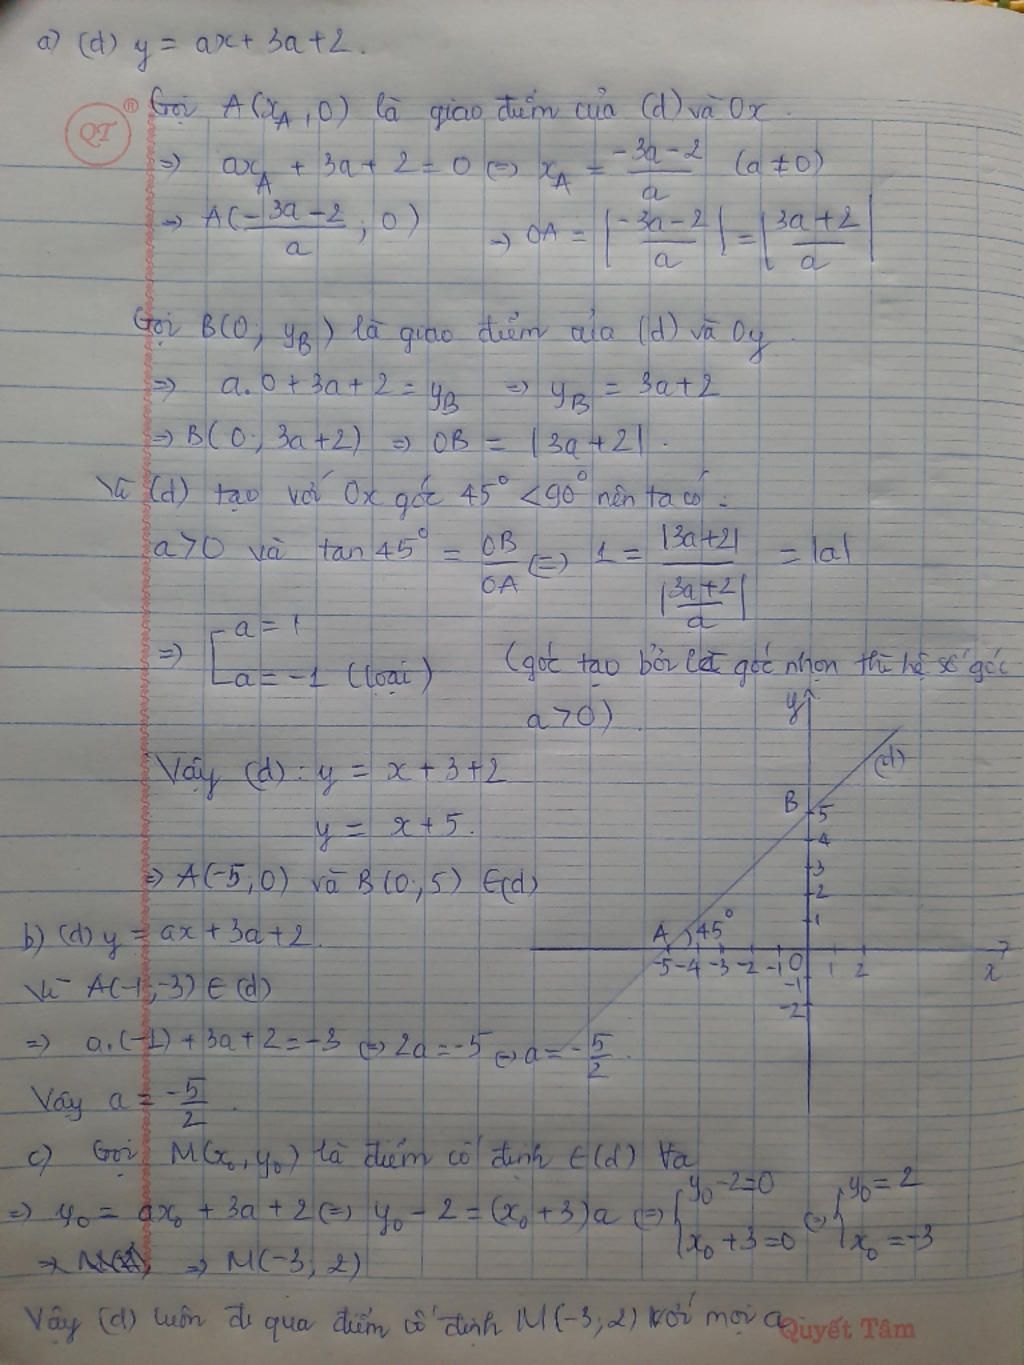 a) (d) y = ax + 3a + 2.
QT ®
Gọi A(x_A, 0) là giao điểm của (d) và Ox.
=> ax_A + 3a + 2 = 0 <=> x_A = \frac{-3a-2}{a} (a ≠ 0)
=> A(\frac{-3a-2}{a}; 0) => OA = |\frac{-3a-2}{a}| = |\frac{3a+2}{a}|
Gọi B(0, y_B) là giao điểm của (d) và Oy.
=> a.0 + 3a + 2 = y_B => y_B = 3a+2
=> B(0; 3a+2) => OB = |3a+2|.
Vì (d) tạo với Ox góc 45° < 90° nên ta có:
a > 0 và tan 45° = \frac{OB}{OA} <=> 1 = \frac{|3a+2|}{|\frac{3a+2}{a}|} = |a|
=> [ a = 1
a = -1 (loại) (góc tạo bởi là góc nhọn thì hệ số góc
a > 0)
Vậy (d): y = x + 3 + 2
y = x + 5.
=> A(-5; 0) và B(0; 5) ∈ (d)
y
(d)
B
5
4
3
2
1
A 45°
-5 -4 -3 -2 -1 O 1 2 x
-1
-2
b) (d) y = ax + 3a + 2.
Vì A(-1; -3) ∈ (d)
=> a.(-1) + 3a + 2 = -3 <=> 2a = -5 <=> a = -\frac{5}{2}.
Vậy a = \frac{-5}{2}.
c) Gọi M(x_0, y_0) là điểm cố định ∈ (d) ∀a
=> y_0 = ax_0 + 3a + 2 <=> y_0 - 2 = (x_0 + 3)a <=> { y_0 - 2 = 0 x_0 + 3 = 0 <=> { y_0 = 2 x_0 = -3
=> M(-3; 2)
Vậy (d) luôn đi qua điểm cố định M(-3; 2) với mọi a
Quyết Tâm